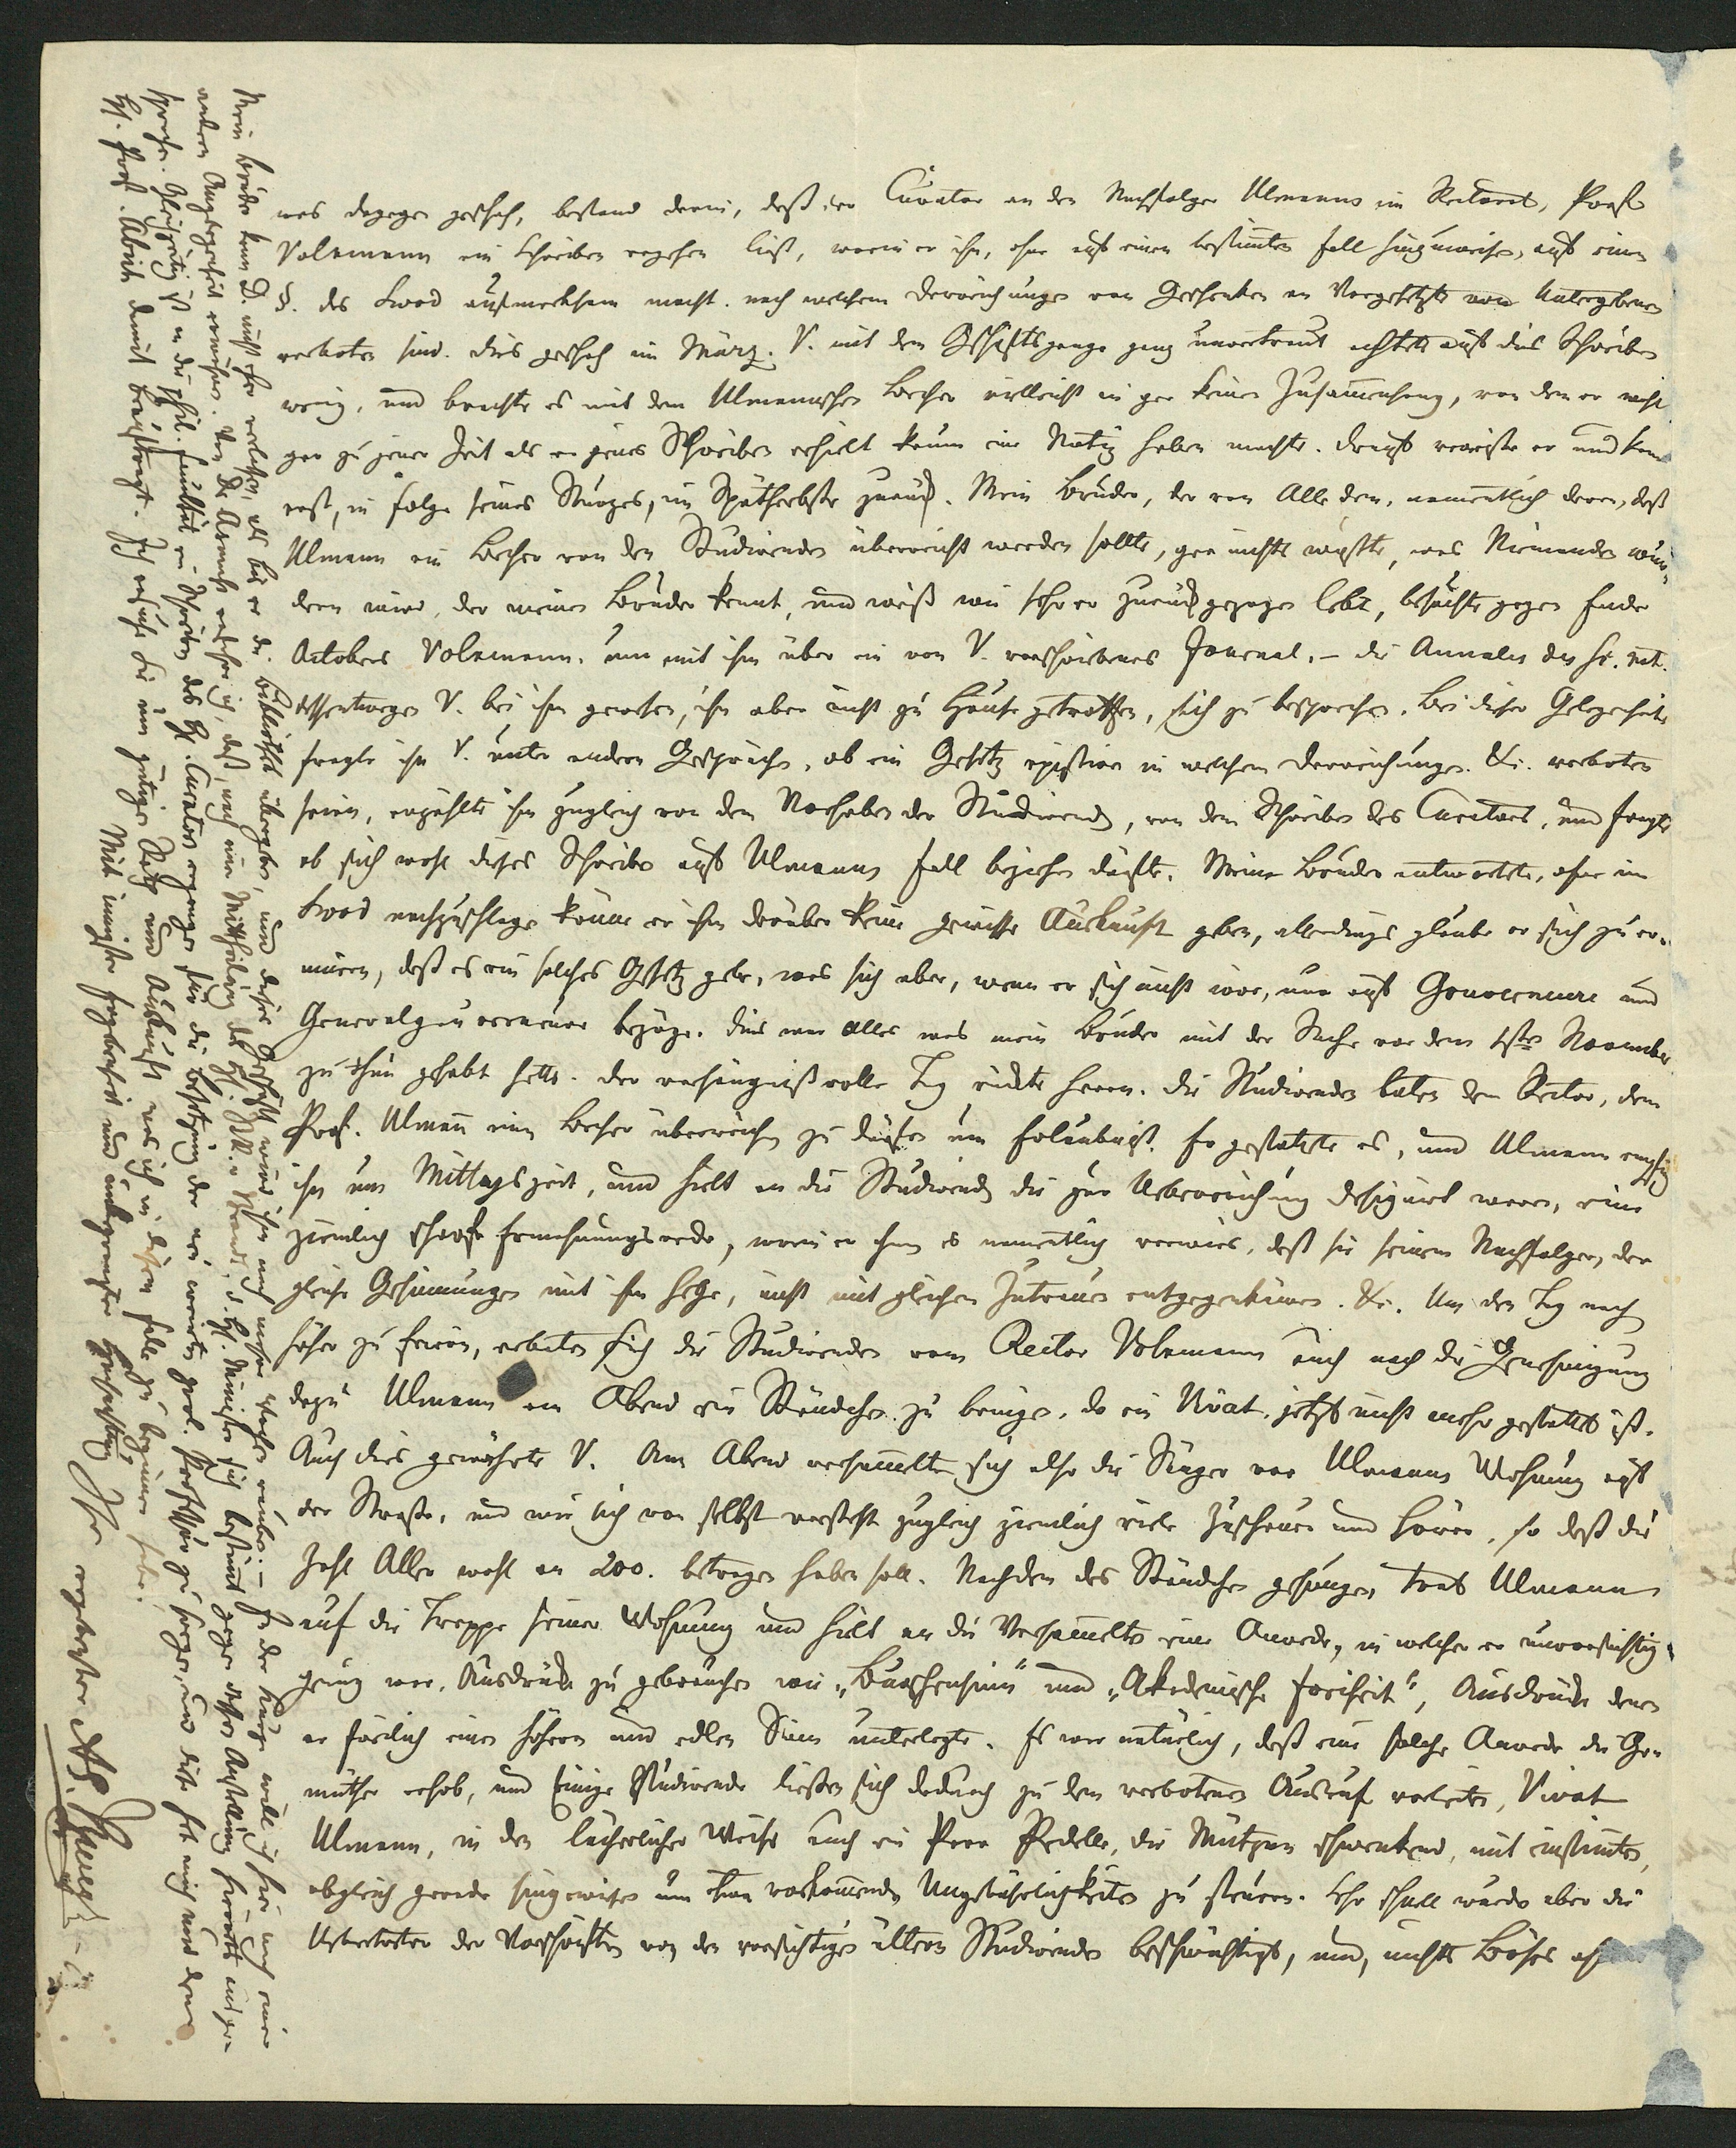 was dagegen geschah, bestand darin, daß der Curator an den Nachfolger Ulmanns im Rectorat, Prof.
Volkmann ein Schreiben ergehen ließ, worin er ihn, ohne auf einen bestimten Fall hinzuweisen, auf einen
§. des Swod aufmerksam macht, nach welchem Darreichungen von Geschenken an Vorgesetzte von Untergebenen
verboten sind. Dies geschah im März. V. mit dem Geschäftsgange ganz unvertraut achtete auf dies Schreiben
wenig, und brachte es mit dem Ulmannschen Becher vielleicht in gar keinen Zusamenhang, von dem er nicht
gar zu jener Zeit als er jenes Schreiben erhielt kaum eine Notiz haben mochte. Drauf verreiste er und kam
erst, in Folge seines Sturzes, im Spätherbste zurück. Mein Bruder, der von Alle dem, namentlich davon, daß
Ulmann ein Becher von den Studirenden überreicht werden sollte, gar nichts wußte, was Niemanden wun-
dern wird, der meinen Bruder kennt, und weiß wie sehr er zurückgezogen lebt, besuchte gegen Ende
Octobers Volkmann, um mit ihm über ein von V. verschriebenes Journal, – die Annales des sc. nat.
dessentwegen V. bei ihm gewesen, ihn aber nicht zu Hause getroffen, sich zu besprechen. Bei dieser Gelegenheit
fragte ihn V. unter andern Gesprächen, ob ein Gesetz existire in welchem Darreichungen &c. verboten
seien, erzählte ihm zugleich von dem Vorhaben der Studirenden, von dem Schreiben des Curators, und fragte
ob sich wohl dieses Schreiben auf Ulmanns Fall beziehen dürfte. Mein Bruder antwortete, ohne im
Swod nachzuschlagen könne er ihm darüber keine gewisse Auskunft geben, allerdings glaube er sich zu er-
innern, daß es ein solches Gesetz gebe, was sich aber, wenn er sich nicht irre, nur auf Gouverneure und
Generalgouverneure bezöge. Dies war alles was mein Bruder mit der Sache vor dem 1sten November
zu thun gehabt hatte. Der verhängnißvolle Tag rückte heran. Die Studirenden baten den Rector, dem
Prof. Ulmann einen Becher überreichen zu dürfen um Erlaubniß. Er gestattete es, und Ulmann empfing
ihn um Mittagszeit, und hielt an die Studirenden die zur Ueberreichung designirt waren, eine
ziemlich scharfe Ermahnungsrede, worin er ihnen es namentlich verwies, daß sie seinem Nachfolger, der
gleiche Gesinnungen mit ihm hege, nicht mit gleichem Zutrauen entgegenkämen. &c. Um den Tag noch
höher zu feiern, erbaten sich die Studirenden vom Rector Volkmann auch noch die Genehmigung
dazu Ulmann am Abend ein Ständchen zu bringen, da ein Vivat jetzt nicht mehr gestattet ist.
Auch dies gewährte V. Am Abend versamelten sich also die Sänger vor Ulmanns Wohnung auf
der Straße, und wie sich von selbst versteht zugleich ziemlich viele Zuschauer und Hörer, so daß die
Zahl Aller wohl an 200. betragen haben soll. Nachdem das Ständchen gesungen trat Ulmann
auf die Treppe seiner Wohnung und hielt an die Versamelten eine Anrede, in welcher er unvorsichtig
genug war, Ausdrücke zu gebrauchen wie „Burschensinn" und „Akademische Freiheit", Ausdrücke denen
er freilich einen höhern und edlen Sinn unterlegte. Es war natürlich, daß eine solche Anrede die Ge-
müther erhob, und Einige Studirende ließen sich dadurch zu dem verbotenen Ausruf verleiten, Vivat
Ulmann, in den lächerlicher Weise auch ein Paar Pedelle, die Mützen schwenkend, mit einstimten,
obgleich gerade hingewiesen um etwa vorkomenden Ungebührlichkeiten zu steuern. Sehr schnell wurden aber die
Uebertreter der Vorschriften von den vorsichtigen ältern Studirenden beschwichtigt, und, nichts Böses
Mein Bruder kann D. nicht eher verlassen, als bis er die Bibliothek übergeben, und dieses Geschäft wird ihm noch mehre Wochen rauben. – In der Kürze will ich hier noch einer
andern Angelegenheit erwähnen. Von
Gleichzeitig ist an die phil. Facultät ein Schreiben des H. Curators ergangen für die Besetzung der
H. Prof. Abich damit beauftragt. Ich ersuche Sie um gütigen Rath und Auskunft was ich in diesem Falle zu beginnen habe.
Mit innigster Ergebenheit und unbegrenzter Hochachtung
Ihr
ergebenster